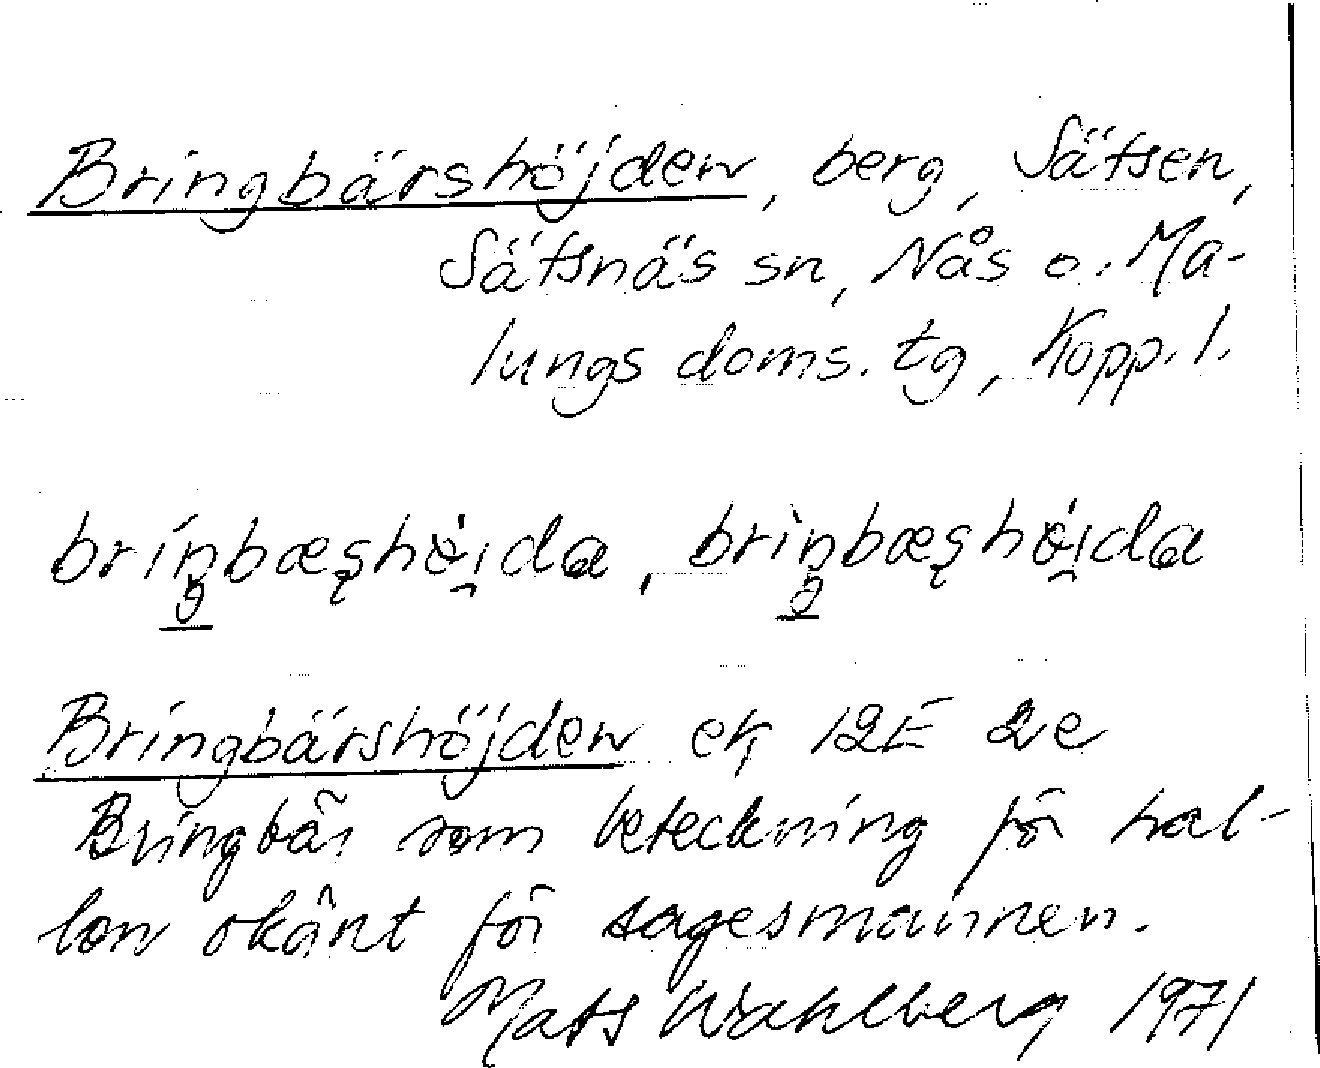 Bringbärshöjden, berg, Sätsen,
Sätsnäs sn, Nås o. Ma-
lungs doms. tg, Kopp. l.
bríŋbæşhö́i̯da, brìŋbæşhö́i̯da
Bringbärshöjden ek 12E 2e
Bringbär som beteckning för hal-
lon okänt för sagesmannen.
Mats Wahlberg 1971